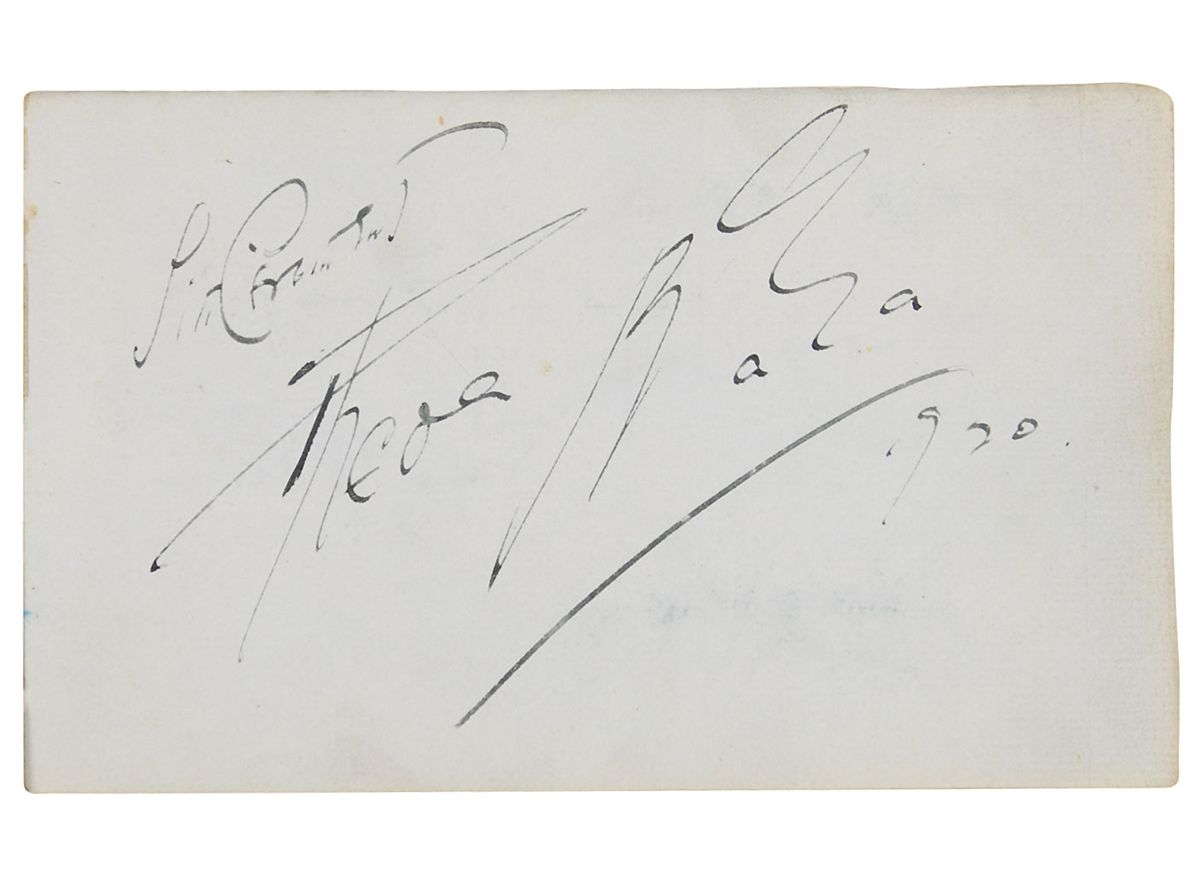 Sincerement
Theda Bara
1920.